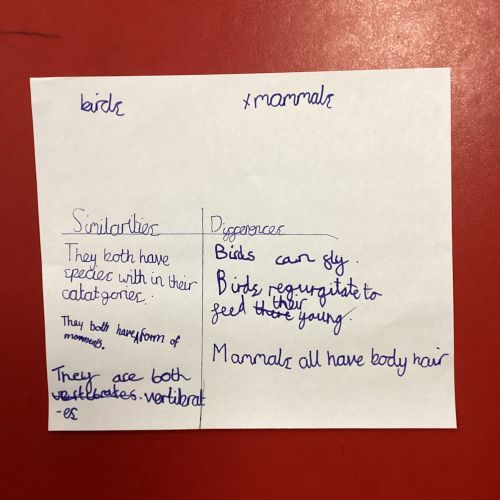 birds
x mammals
Similarities
They both have
species with in their
catatgories.
They both have a form of
They are both
vertebrates. vertibrat
-es
Differences
Birds can fly.
Birds regurgitate to
feed there their young.
Mammals all have body hair